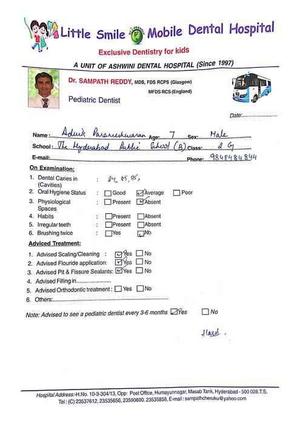 Little Smile Mobile Dental Hospital
Exclusive Dentistry for kids
A UNIT OF ASHWINI DENTAL HOSPITAL (Since 1997)
Dr. SAMPATH REDDY, MDS, FDS RCPS (Glasgow)
MFDS RCS (England)
Pediatric Dentist
Date:
Name: Advik Parameshwaran Age: 7 Sex: Male
School: The Hyderabad Public School (B) Class: 2 G
E-mail: Phone: 9848484844
On Examination:
1. Dental Caries in : 84, 85,
(Cavities)
2. Oral Hygiene Status : Good Average Poor
3. Physiological : Present Absent
Spaces
4. Habits : Present Absent
5. Irregular teeth : Present Absent
6. Brushing twice : Yes No
Adviced Treatment:
1. Advised Scaling/Cleaning : Yes No
2. Advised Flouride application: Yes No
3. Advised Pit & Fissure Sealants: Yes No
4. Advised Filling in
5. Advised Orthodontic treatment : Yes No
6. Others:
Note: Advised to see a pediatric dentist every 3-6 months Yes No
Hospital Address: H.No. 10-3-304/13, Opp: Post Office, Humayunnagar, Masab Tank, Hyderabad - 500 028.T.S,
Tel: (C) 23537612, 23535656, 23590800, 23535858. E-mail : sampathcheruku@yahoo.com